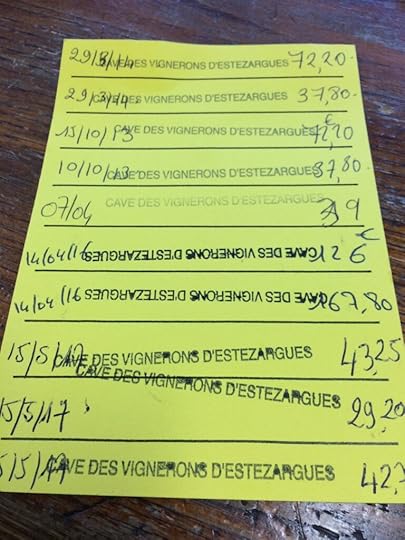 29/3/14 CAVE DES VIGNERONS D'ESTEZARGUES 72,20
29/3/14 CAVE DES VIGNERONS D'ESTEZARGUES 37,80
15/10/13 CAVE DES VIGNERONS D'ESTEZARGUES €
10/10/13 CAVE DES VIGNERONS D'ESTEZARGUES 37,80
07/04 CAVE DES VIGNERONS D'ESTEZARGUES
14/04/16 CAVE DES VIGNERONS D'ESTEZARGUES 126 €
14/04/16 CAVE DES VIGNERONS D'ESTEZARGUES 67,80
15/5/17 CAVE DES VIGNERONS D'ESTEZARGUES 43,25
15/5/17 CAVE DES VIGNERONS D'ESTEZARGUES 29,20
15/5/17 CAVE DES VIGNERONS D'ESTEZARGUES 42,